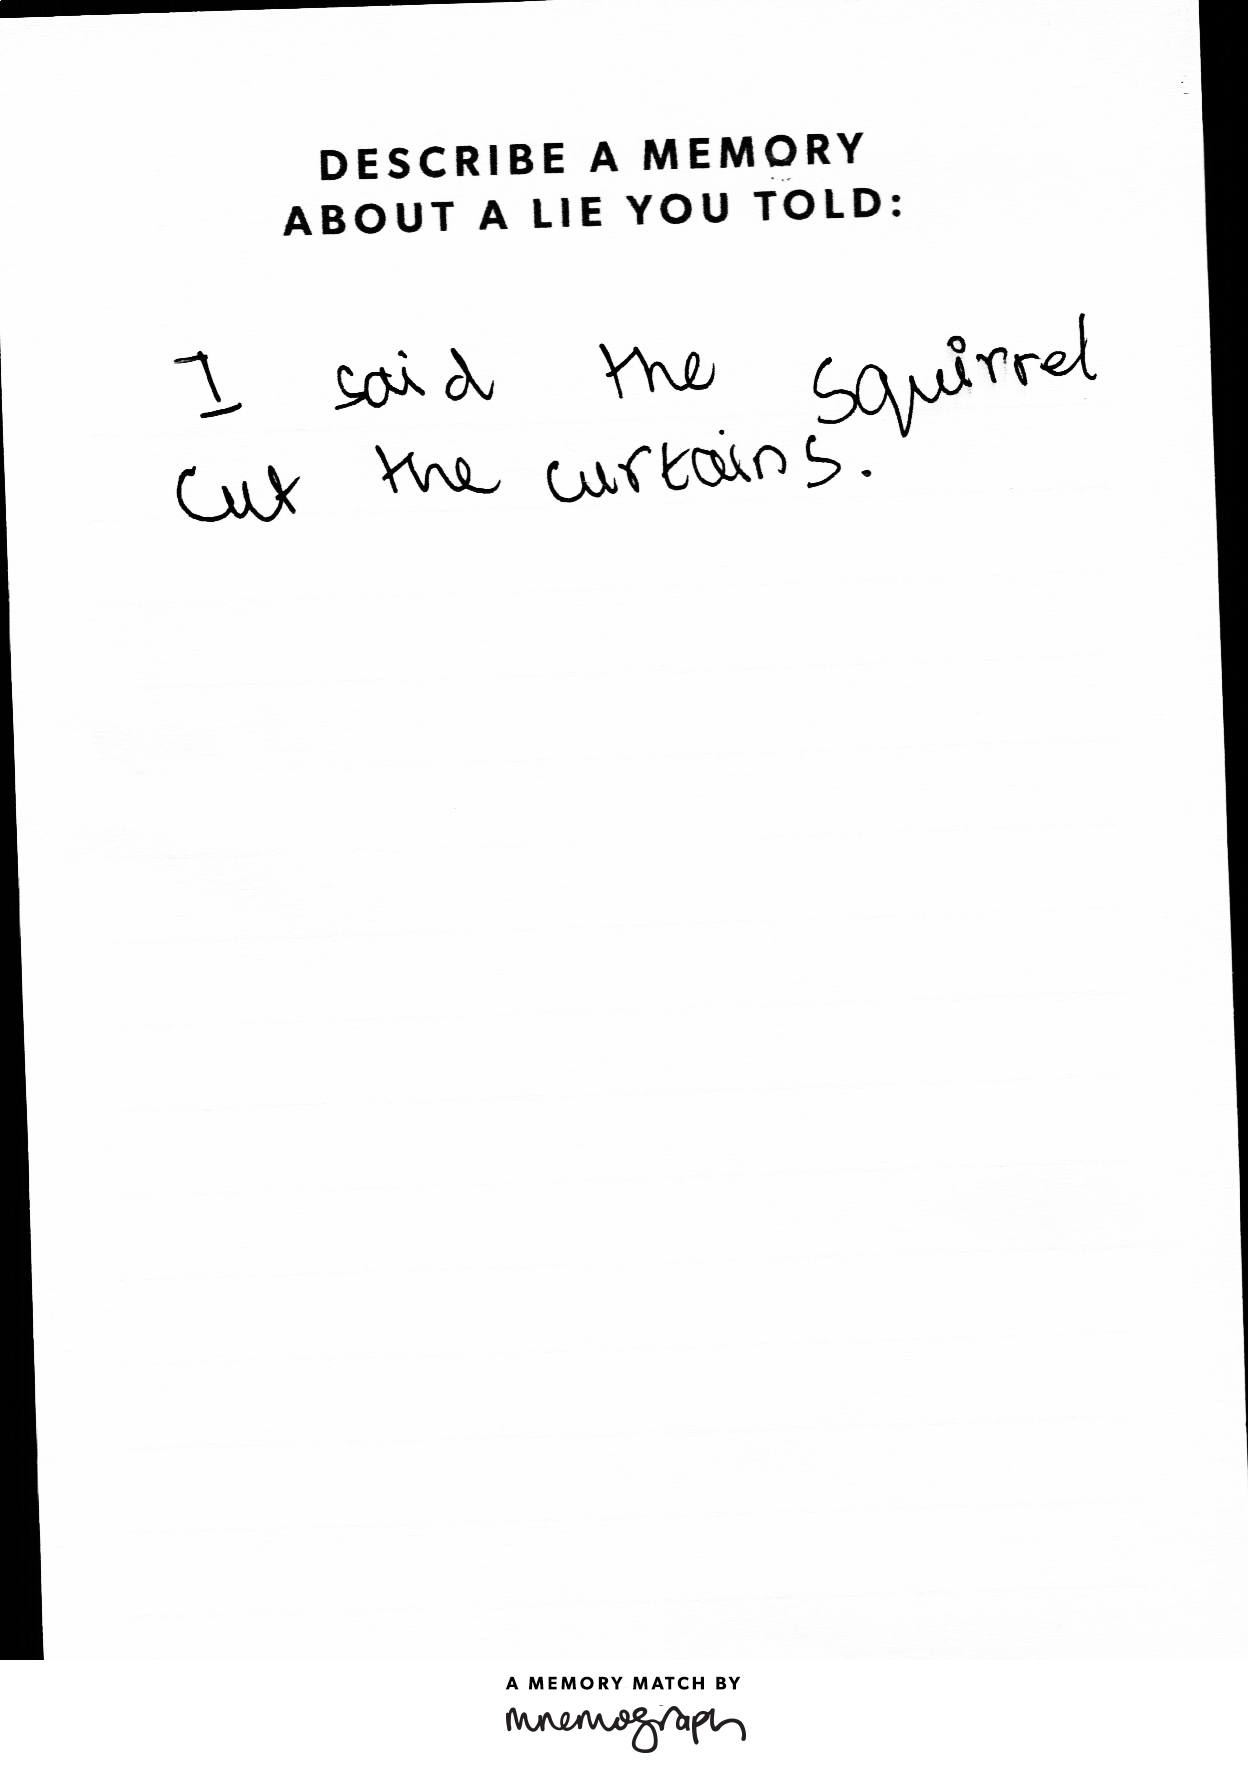 DESCRIBE A MEMORY
ABOUT A LIE YOU TOLD:
I said the squirrel
cut the curtains.
A MEMORY MATCH BY
mnemograph